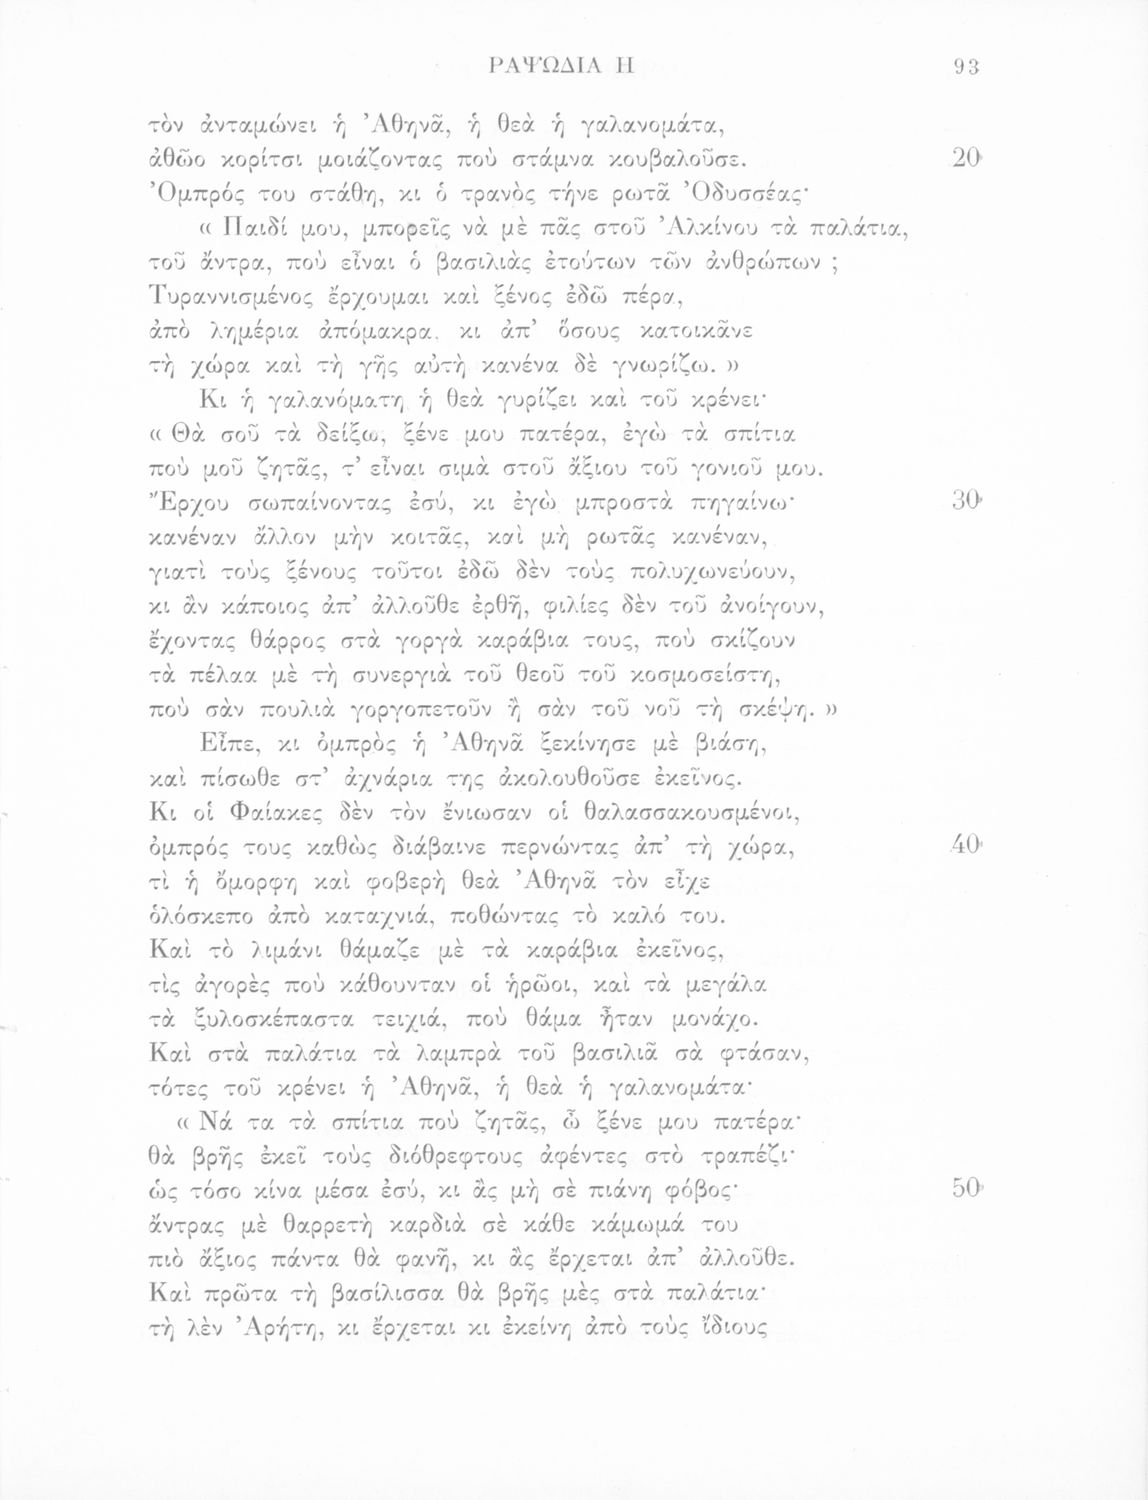 ΡΑΨΩΔΙΑ Η 93
τὸν ἀνταμώνει ἡ Ἀθηνᾶ, ἡ θεὰ ἡ γαλανομάτα,
ἀθῶο κορίτσι μοιάζοντας ποὺ στάμνα κουβαλοῦσε. 20
Ὀμπρός του στάθη, κι ὁ τρανὸς τήνε ρωτᾶ Ὀδυσσέας·
« Παιδί μου, μπορεῖς νὰ μὲ πᾶς στοῦ Ἀλκίνου τὰ παλάτια,
τοῦ ἄντρα, ποὺ εἶναι ὁ βασιλιὰς ἐτούτων τῶν ἀνθρώπων ;
Τυραννισμένος ἔρχουμαι καὶ ξένος ἐδῶ πέρα,
ἀπὸ λημέρια ἀπόμακρα, κι ἀπ’ ὅσους κατοικᾶνε
τὴ χώρα καὶ τὴ γῆς αὐτὴ κανένα δὲ γνωρίζω. »
Κι ἡ γαλανόματη ἡ θεὰ γυρίζει καὶ τοῦ κρένει·
« Θὰ σοῦ τὰ δείξω, ξένε μου πατέρα, ἐγὼ τὰ σπίτια
ποὺ μοῦ ζητᾶς, τ’ εἶναι σιμὰ στοῦ ἄξιου τοῦ γονιοῦ μου.
Ἔρχου σωπαίνοντας ἐσύ, κι ἐγὼ μπροστὰ πηγαίνω· 30
κανέναν ἄλλον μὴν κοιτᾶς, καὶ μὴ ρωτᾶς κανέναν,
γιατὶ τοὺς ξένους τοῦτοι ἐδῶ δὲν τοὺς πολυχωνεύουν,
κι ἂν κάποιος ἀπ’ ἀλλοῦθε ἐρθῆ, φιλίες δὲν τοῦ ἀνοίγουν,
ἔχοντας θάρρος στὰ γοργὰ καράβια τους, ποὺ σκίζουν
τὰ πέλαα μὲ τὴ συνεργιὰ τοῦ θεοῦ τοῦ κοσμοσείστη,
ποὺ σὰν πουλιὰ γοργοπετοῦν ἢ σὰν τοῦ νοῦ τὴ σκέψη. »
Εἶπε, κι ὀμπρὸς ἡ Ἀθηνᾶ ξεκίνησε μὲ βιάση,
καὶ πίσωθε στ’ ἀχνάρια της ἀκολουθοῦσε ἐκεῖνος.
Κι οἱ Φαίακες δὲν τὸν ἔνιωσαν οἱ θαλασσακουσμένοι,
ὀμπρός τους καθὼς διάβαινε περνώντας ἀπ’ τὴ χώρα, 40
τὶ ἡ ὄμορφη καὶ φοβερὴ θεὰ Ἀθηνᾶ τὸν εἶχε
ὁλόσκεπο ἀπὸ καταχνιά, ποθώντας τὸ καλό του.
Καὶ τὸ λιμάνι θάμαζε μὲ τὰ καράβια ἐκεῖνος,
τὶς ἀγορὲς ποὺ κάθουνταν οἱ ἡρῶοι, καὶ τὰ μεγάλα
τὰ ξυλοσκέπαστα τειχιά, ποὺ θάμα ἦταν μονάχο.
Καὶ στὰ παλάτια τὰ λαμπρὰ τοῦ βασιλιᾶ σὰ φτάσαν,
τότες τοῦ κρένει ἡ Ἀθηνᾶ, ἡ θεὰ ἡ γαλανομάτα·
« Νά τα τὰ σπίτια ποὺ ζητᾶς, ὦ ξένε μου πατέρα·
θὰ βρῆς ἐκεῖ τοὺς διόθρεφτους ἀφέντες στὸ τραπέζι·
ὡς τόσο κίνα μέσα ἐσύ, κι ἂς μὴ σὲ πιάνη φόβος· 50
ἄντρας μὲ θαρρετὴ καρδιὰ σὲ κάθε κάμωμά του
πιὸ ἄξιος πάντα θὰ φανῆ, κι ἂς ἔρχεται ἀπ’ ἀλλοῦθε.
Καὶ πρῶτα τὴ βασίλισσα θὰ βρῆς μὲς στὰ παλάτια·
τὴ λὲν Ἀρήτη, κι ἔρχεται κι ἐκείνη ἀπὸ τοὺς ἴδιους